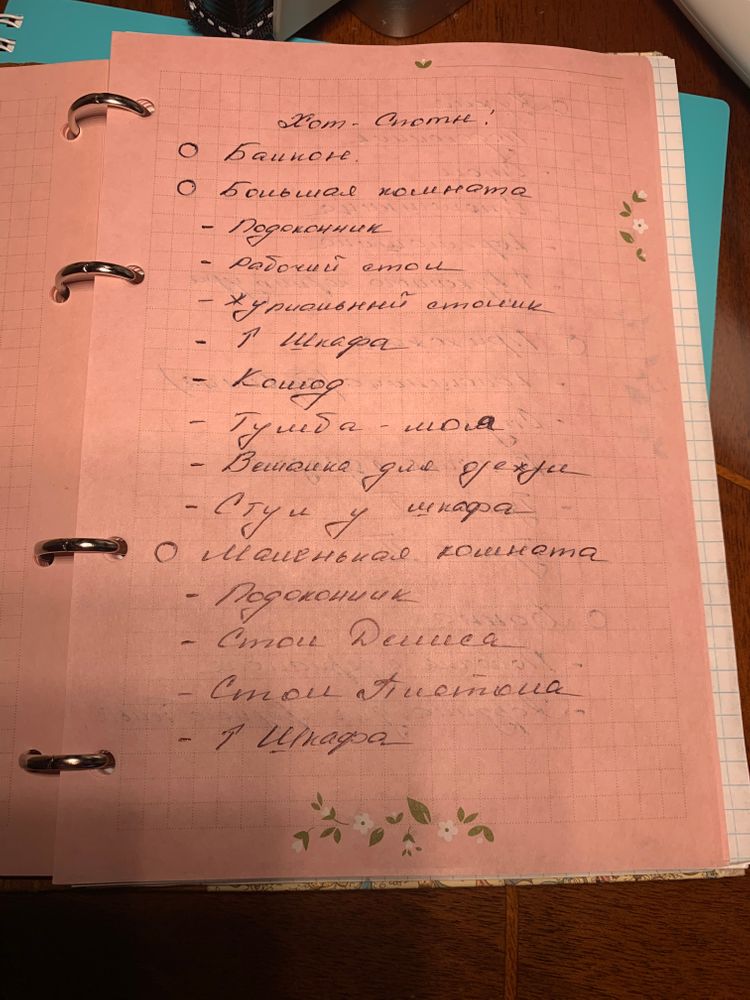 Хот-Споты!
○ Балкон.
○ Большая комната
- Подоконник
- Рабочий стол
- Журнальный столик
- ↑ Шкафа
- Комод
- Тумба - моя
- Вешалка для одежды
- Стул у шкафа
○ Маленькая комната
- Подоконник
- Стол Дениса
- Стол Антона
- ↑ Шкафа